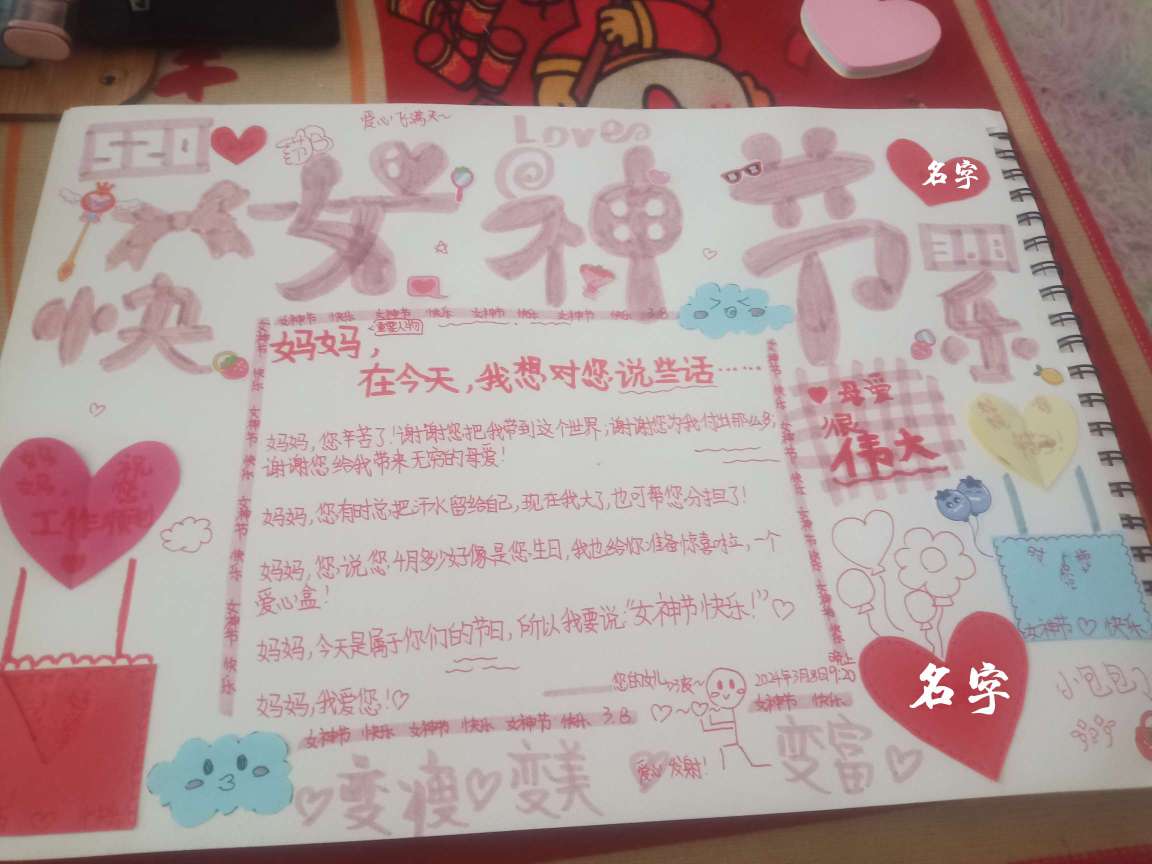 爱心飞满天~
Love
520
节日
女神节
名字
3.8
快
乐
女神节 快乐 女神节 快乐 女神节 快乐 女神节 快乐 3.8
妈妈，
重要人物
在今天，我想对您说些话……
妈妈，您辛苦了！谢谢您把我带到这个世界，谢谢您为我付出那么多，
谢谢您给我带来无穷的母爱！
妈妈，您有时总把汗水留给自己，现在我大了，也可帮您分担了！
妈妈，您说您4月多少好像是您生日，我也给你准备惊喜啦，一个
爱心盒！
妈妈，今天是属于你们的节日，所以我要说：“女神节快乐！”♡
妈妈，我爱您！♡
2024年3月8日9:20
晚上
女神节 快乐
女神节 快乐 女神节 快乐 女神节 快乐 3.8
女神节 快乐 女神节 快乐 女神节 快乐 女神节 快乐
♥母爱
很
伟大
妈妈，祝您
工作顺利
女神节♡快乐
名字
小包包
爱心发射！
♡变瘦♡变美♡变富♡